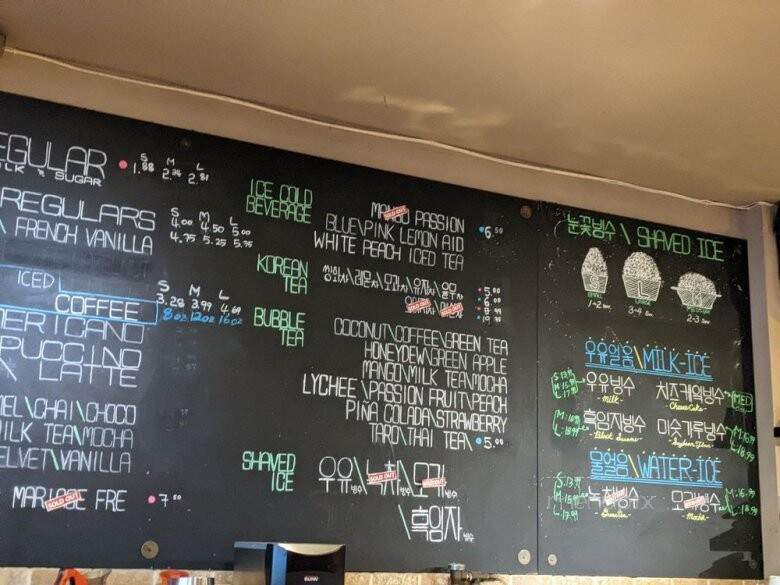 EGULAR S M L
ILK & SUGAR 1.88 2.36 2.81
REGULARS S M L
4.00 4.50 5.00
\ FRENCH VANILLA 4.75 5.25 5.75
ICED S M L
COFFEE 3.28 3.99 4.69
8oz 12oz 16oz
MERICANO
PPUCCINO
\ LATTE
MEL\CHAI\CHOCO
MILK TEA\MOCHA
ELVET\VANILLA
MARIAGE FRE 7.50
SOLD OUT
ICE COLD
BEVERAGE
MANGO PASSION
SOLD OUT
BLUE\PINK LEMON AID 6.50
WHITE PEACH ICED TEA
KOREAN
TEA
5.00
SOLD OUT SOLD OUT
BUBBLE
TEA
COCONUT\COFFEE\GREEN TEA
HONEYDEW\GREEN APPLE
MANGO\MILK TEA\MOCHA
LYCHEE \PASSION FRUIT\PEACH
PINA COLADA\STRAWBERRY
TARO\THAI TEA\ 5.00
SHAVED
ICE
우유빙수\녹차빙수\모카빙수
SOLD OUT SOLD OUT
\흑임자빙수
눈꽃빙수 \ SHAVED ICE
S L
1-2 3-4 2-3
우유얼음\MILK-ICE
우유빙수 치즈케익빙수 MED
Milk Cheese Cake
흑임자빙수 미숫가루빙수
물얼음\WATER-ICE
S:13.99
녹차빙수 모카빙수
L:17.99 Mocha
BUNN